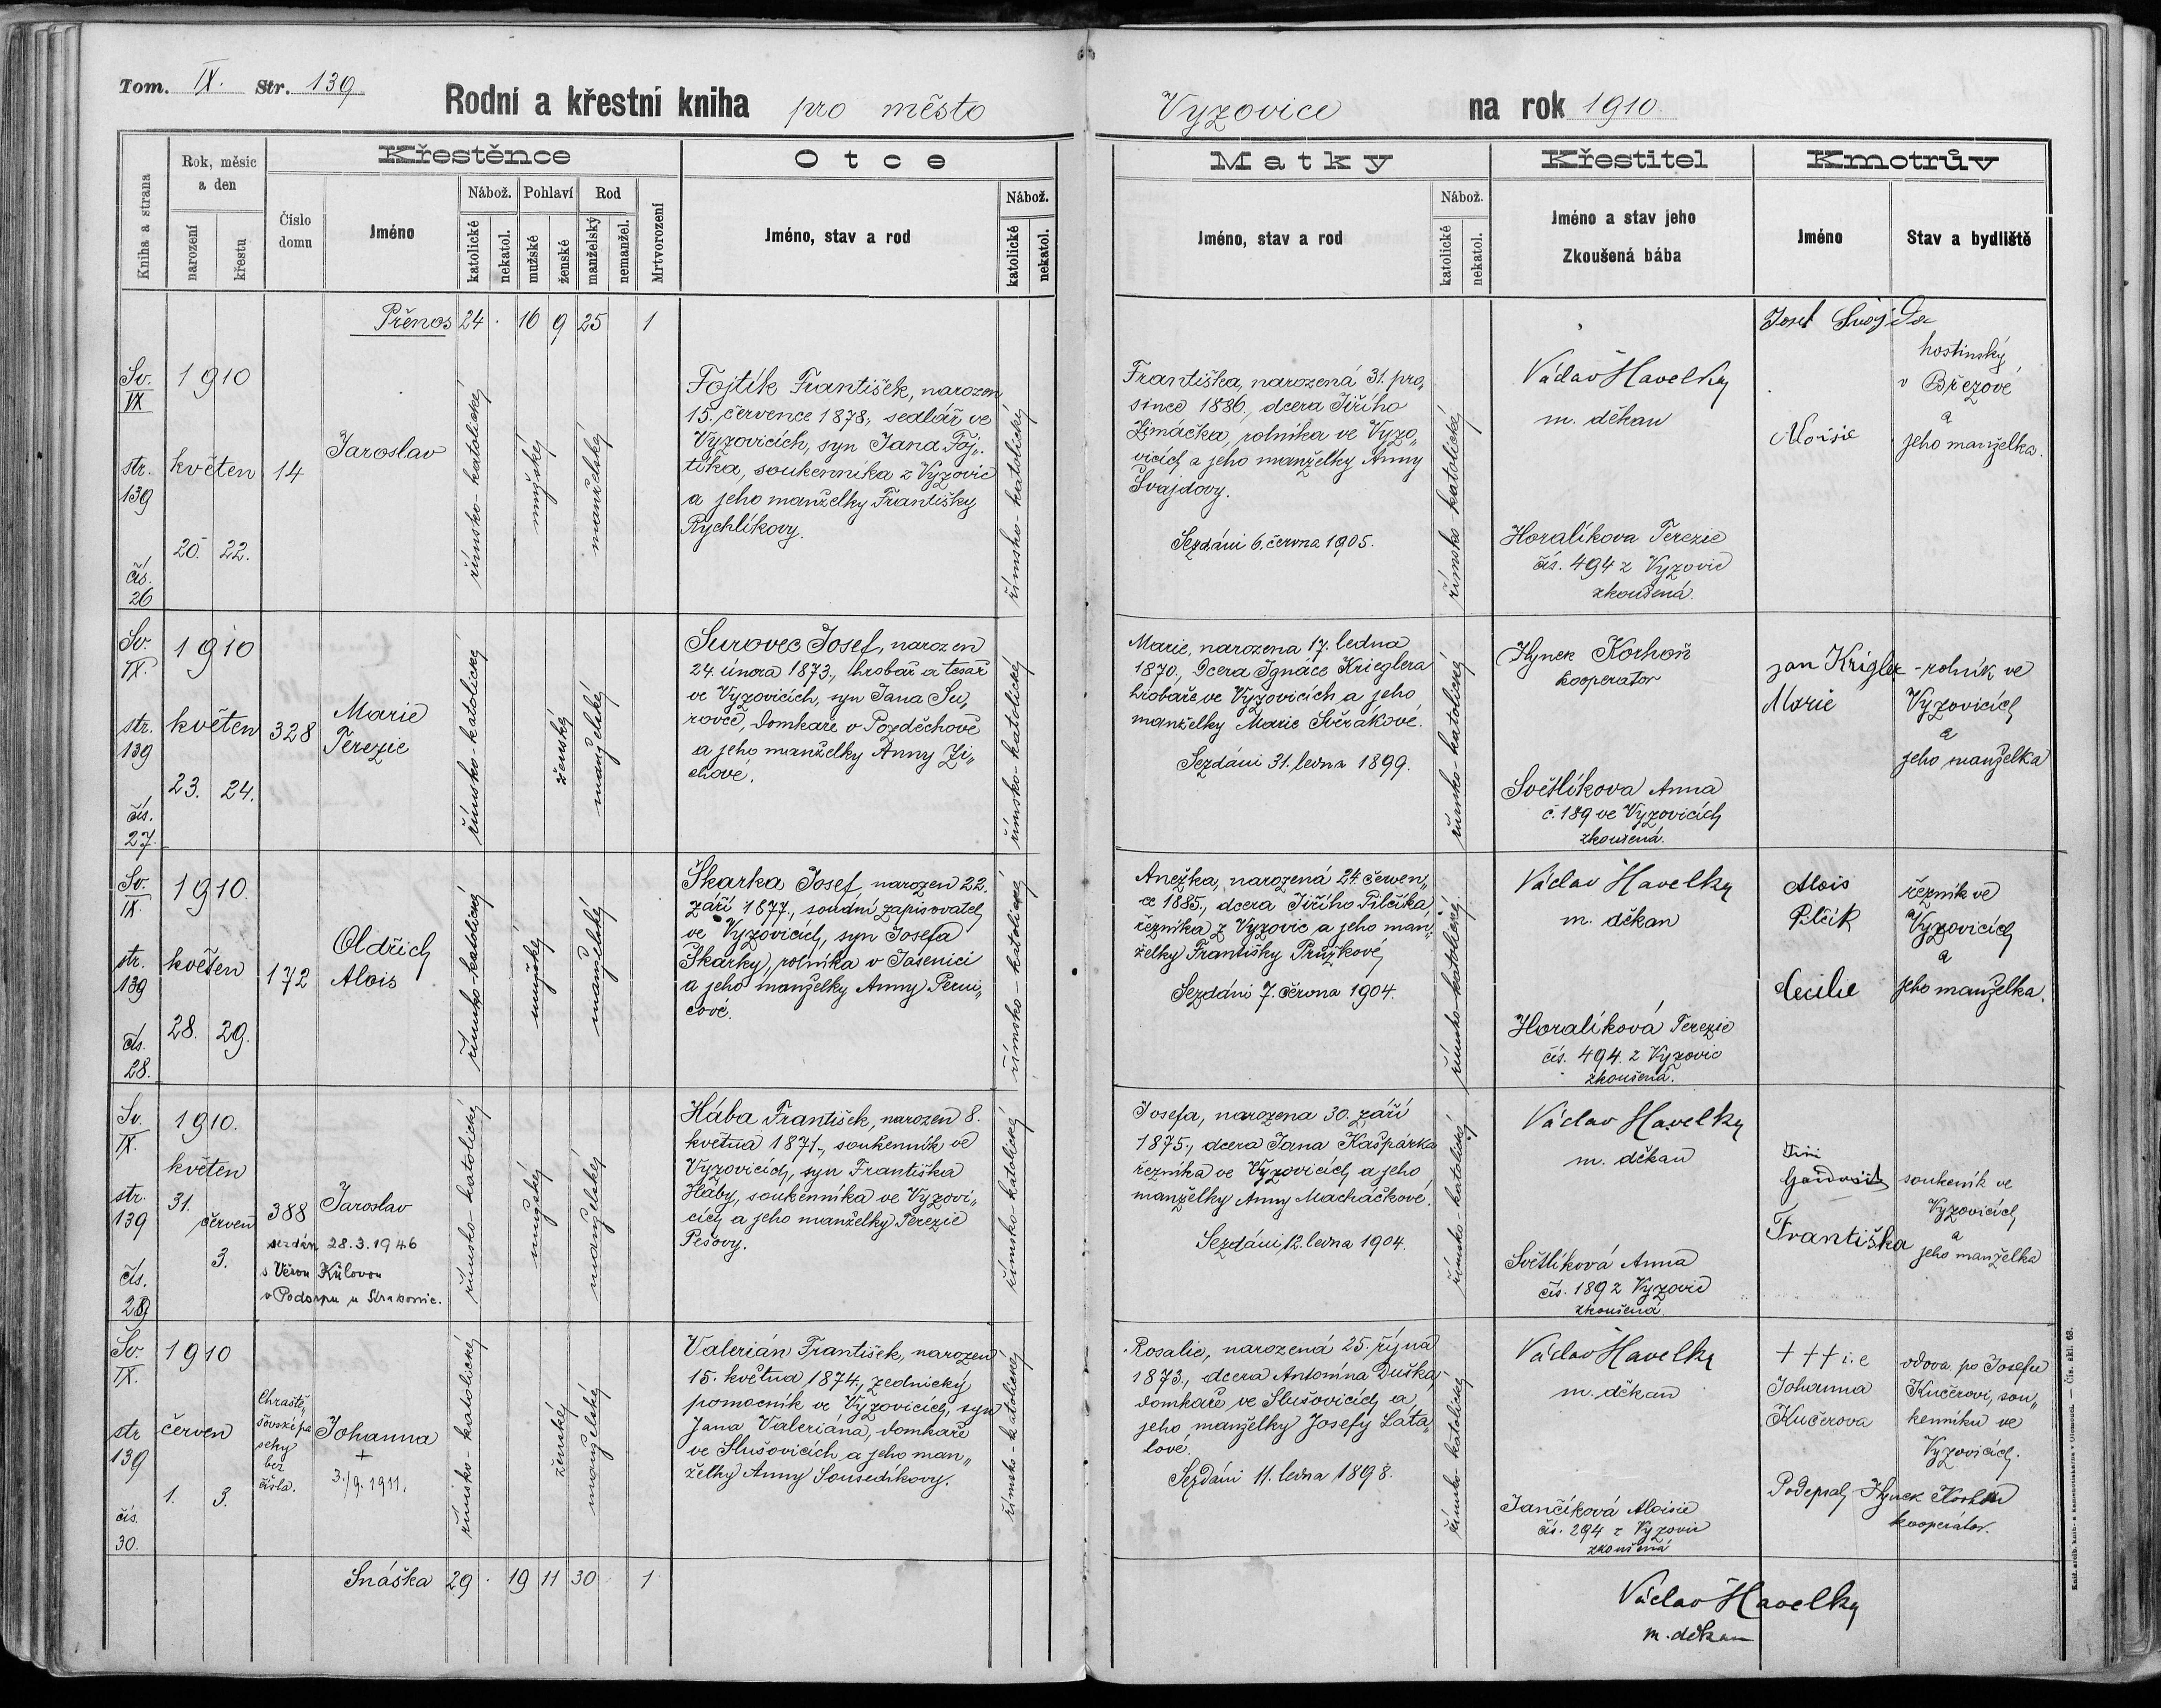 Tom. IX. Str. 139
Rodní a křestní kniha pro město Vyzovice na rok 1910.
Kniha a strana
Rok, měsíc a den
narození
křestu
Číslo domu
Křestěnce
Jméno
Nábož.
katolické
nekatol.
Pohlaví
mužské
ženské
Rod
manželský
nemanžel.
Mrtvorození
Otce
Jméno, stav a rod
Nábož.
katolické
nekatol.
Matky
Jméno, stav a rod
Nábož.
katolické
nekatol.
Křestitel
Jméno a stav jeho
Zkoušená bába
Kmotrův
Jméno
Stav a bydliště
Přenos 24 . 16 9 25 1
Sv.
IX
str.
139
čís.
26
1910
květen
20. 22.
14
Jaroslav
římsko-katolické
mužský
manželský
Fojtík František, narozen
15. července 1878., sedlář ve
Vyzovicích, syn Jana Foj„
tíka, soukenníka z Vyzovic
a jeho manželky Františky
Rychlíkovy.
římsko-katolický
Františka, narozená 31. pro„
since 1886., dcera Jiřího
Zimáčka, rolníka ve Vyzo„
vicích a jeho manželky Anny
Švajdovy.
Sezdáni 6. června 1905.
římsko-katolické
Václav Havelka
m. děkan
Horalíkova Terezie
čís. 494 z Vyzovic
zkoušená.
Josef Švajda
hostinský
v Březové
a
jeho manželka.
Aloisie
Sv.
IX.
str.
139
čís.
27.
1910
květen
23. 24.
328
Marie
Terezie
římsko-katolické
ženský
manželský
Surovec Josef, narozen
24. února 1873., hrobař a tesař
ve Vyzovicích, syn Jana Su„
rovce, domkaře v Pozděchově
a jeho manželky Anny Zi„
chové.
římsko-katolický
Marie, narozena 17. ledna
1870., dcera Ignáce Krieglera
hrobaře ve Vyzovicích a jeho
manželky Marie Svěrákové.
Sezdáni 31. ledna 1899.
římsko-katolické
Hynek Korhoň
kooperator
Světlíkova Anna
č. 189 ve Vyzovicích
zkoušená.
Jan Krigler
Marie
rolník ve
Vyzovicích
a
jeho manželka
Sv.
IX.
str.
139
čís.
28.
1910.
květen
28. 29.
172
Oldřich
Alois
římsko-katolický
mužský
manželský
Škarka Josef, narozen 22.
září 1877., soudní zapisovatel
ve Vyzovicích, syn Josefa
Škarky, rolníka v Jasenici
a jeho manželky Anny Perni„
cové.
římsko-katolické
Anežka, narozená 24. červen„
ce 1885., dcera Jiřího Pilčíka
řezníka z Vyzovic a jeho man„
želky Františky Průžkové,
Sezdáni 7. června 1904.
římsko-katolické
Václav Havelka
m. děkan
Horalíková Terezie
čís. 494. z Vyzovic
zkoušená.
Alois
Pilčík
Cecilie
řezník ve
Vyzovicích
a
jeho manželka.
Sv.
IX.
str.
139
čís.
29
1910.
květen
31.
červen
3.
388
Jaroslav
sezdán 28.3.1946
s Věrou Kůlovou
v Podsrpu u Strakonic.
římsko-katolický
mužský
manželský
Hába František, narozen 8.
května 1871., soukenník ve
Vyzovicích, syn Františka
Háby, soukenníka ve Vyzovi„
cích a jeho manželky Terezie
Pešovy.
římsko-katolický
Josefa, narozena 30. září
1875., dcera Jana Kašpárka
řezníka ve Vyzovicích a jeho
manželky Anny Macháčkové.
Sezdáni 12. ledna 1904.
římsko-katolický
Václav Havelka
m. děkan
Světlíková Anna
čís. 189 z Vyzovic
zkoušená.
Jiří
Františka
soukeník ve
Vyzovicích
a
jeho manželka
Sv.
IX.
str
139
čís.
30.
1910
červen
1. 3.
Chrastě„
šovské pa
seky
bez
čísla.
Johanna
+
3./9. 1911.
římsko-katolické
ženský
manželský
Valerián František, narozen
15. května 1874., zednický
pomocník ve Vyzovicích, syn
Jana Valeriána, domkaře
ve Slušovicích a jeho man„
želky Anny Sousedíkovy.
římsko-katolický
Rosalie, narozená 25. října
1873., dcera Antonína Duška,
domkaře ve Slušovicích a
jeho manželky Josefy Láta„
lové.
Sezdáni 11. ledna 1898.
římsko-katolický
Václav Havelka
m. děkan
Jančíková Aloisie
čís. 294 z Vyzovic
zkoušená
+++ i. e
Johanna
Kučerova
vdova po Josefu
Kučerovi, sou„
kenníku ve
Vyzovicích.
Podepsal Hynek Korhoň
kooperátor.
Snáška 29 . 19 11 30 1
Václav Havelka
m. děkan